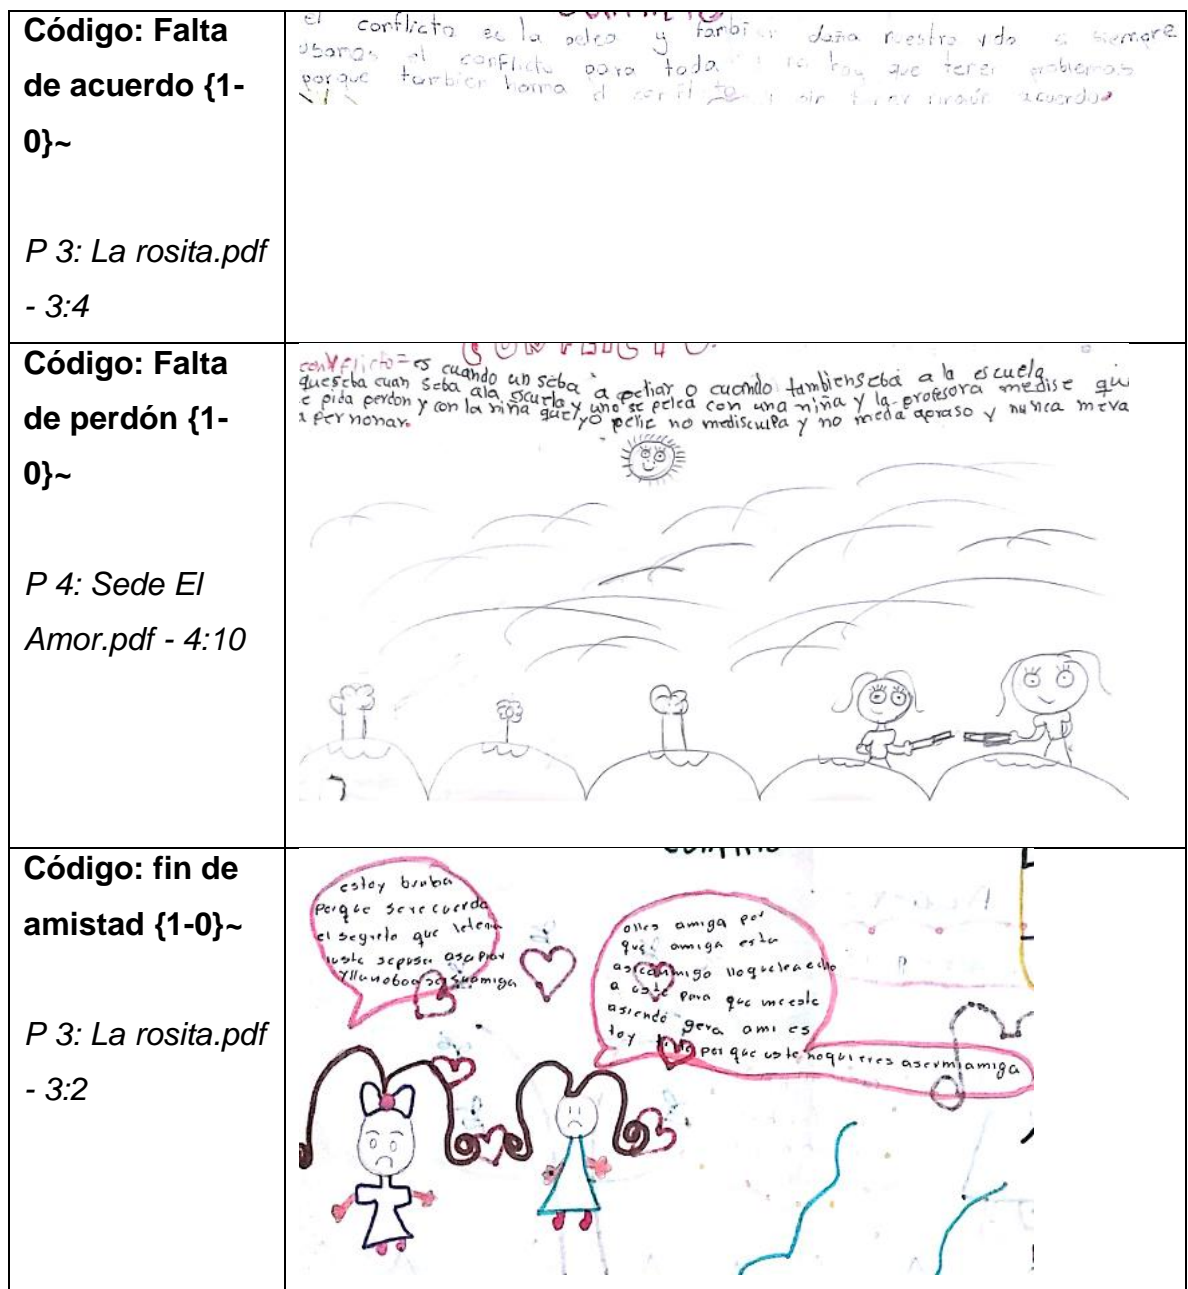 Código: Falta
de acuerdo {1-
0}~
P 3: La rosita.pdf
- 3:4
el conflicto es la pelea y también daña nuestra vida si siempre
usamos el conflicto para todo no hay que tener problemas
porque tambien el conflicto sin tener ningún acuerdo
Código: Falta
de perdón {1-
0}~
P 4: Sede El
Amor.pdf - 4:10
CONFLICTO.
conflicto = es cuando un seba a peliar o cuando tambienseba a la escuela
queseba cuan seba ala escuela y uno se pelea con una niña y la profesora medise qu
e pida perdon y con la niña que yo pelie no mediscuLpa y no meda abraso y nunca meva
a pernonar.
Código: fin de
amistad {1-0}~
P 3: La rosita.pdf
- 3:2
estoy braba
porque serecuerda
el segreto que
uste sepuso
yllanoboa sersuamiga
olles amiga por
que amiga esta
asicanmigo lloqueleaecho
a uste para que meeste
asiendo gera ami es
toy triste porque uste noquieres asermiamiga